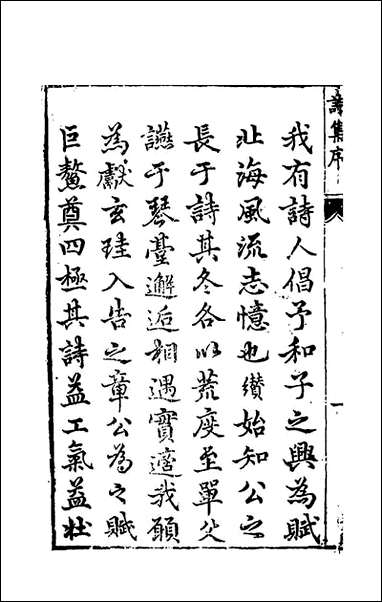 我有詩人倡予和子之興為賦
北海風流志憶也纘始知公之
長于詩其冬各以荒度至單父
讌于琴臺邂逅相遇實適我願
為獻玄珪入告之章公為之賦
巨鰲奠四極其詩益工氣益壯
集序
一